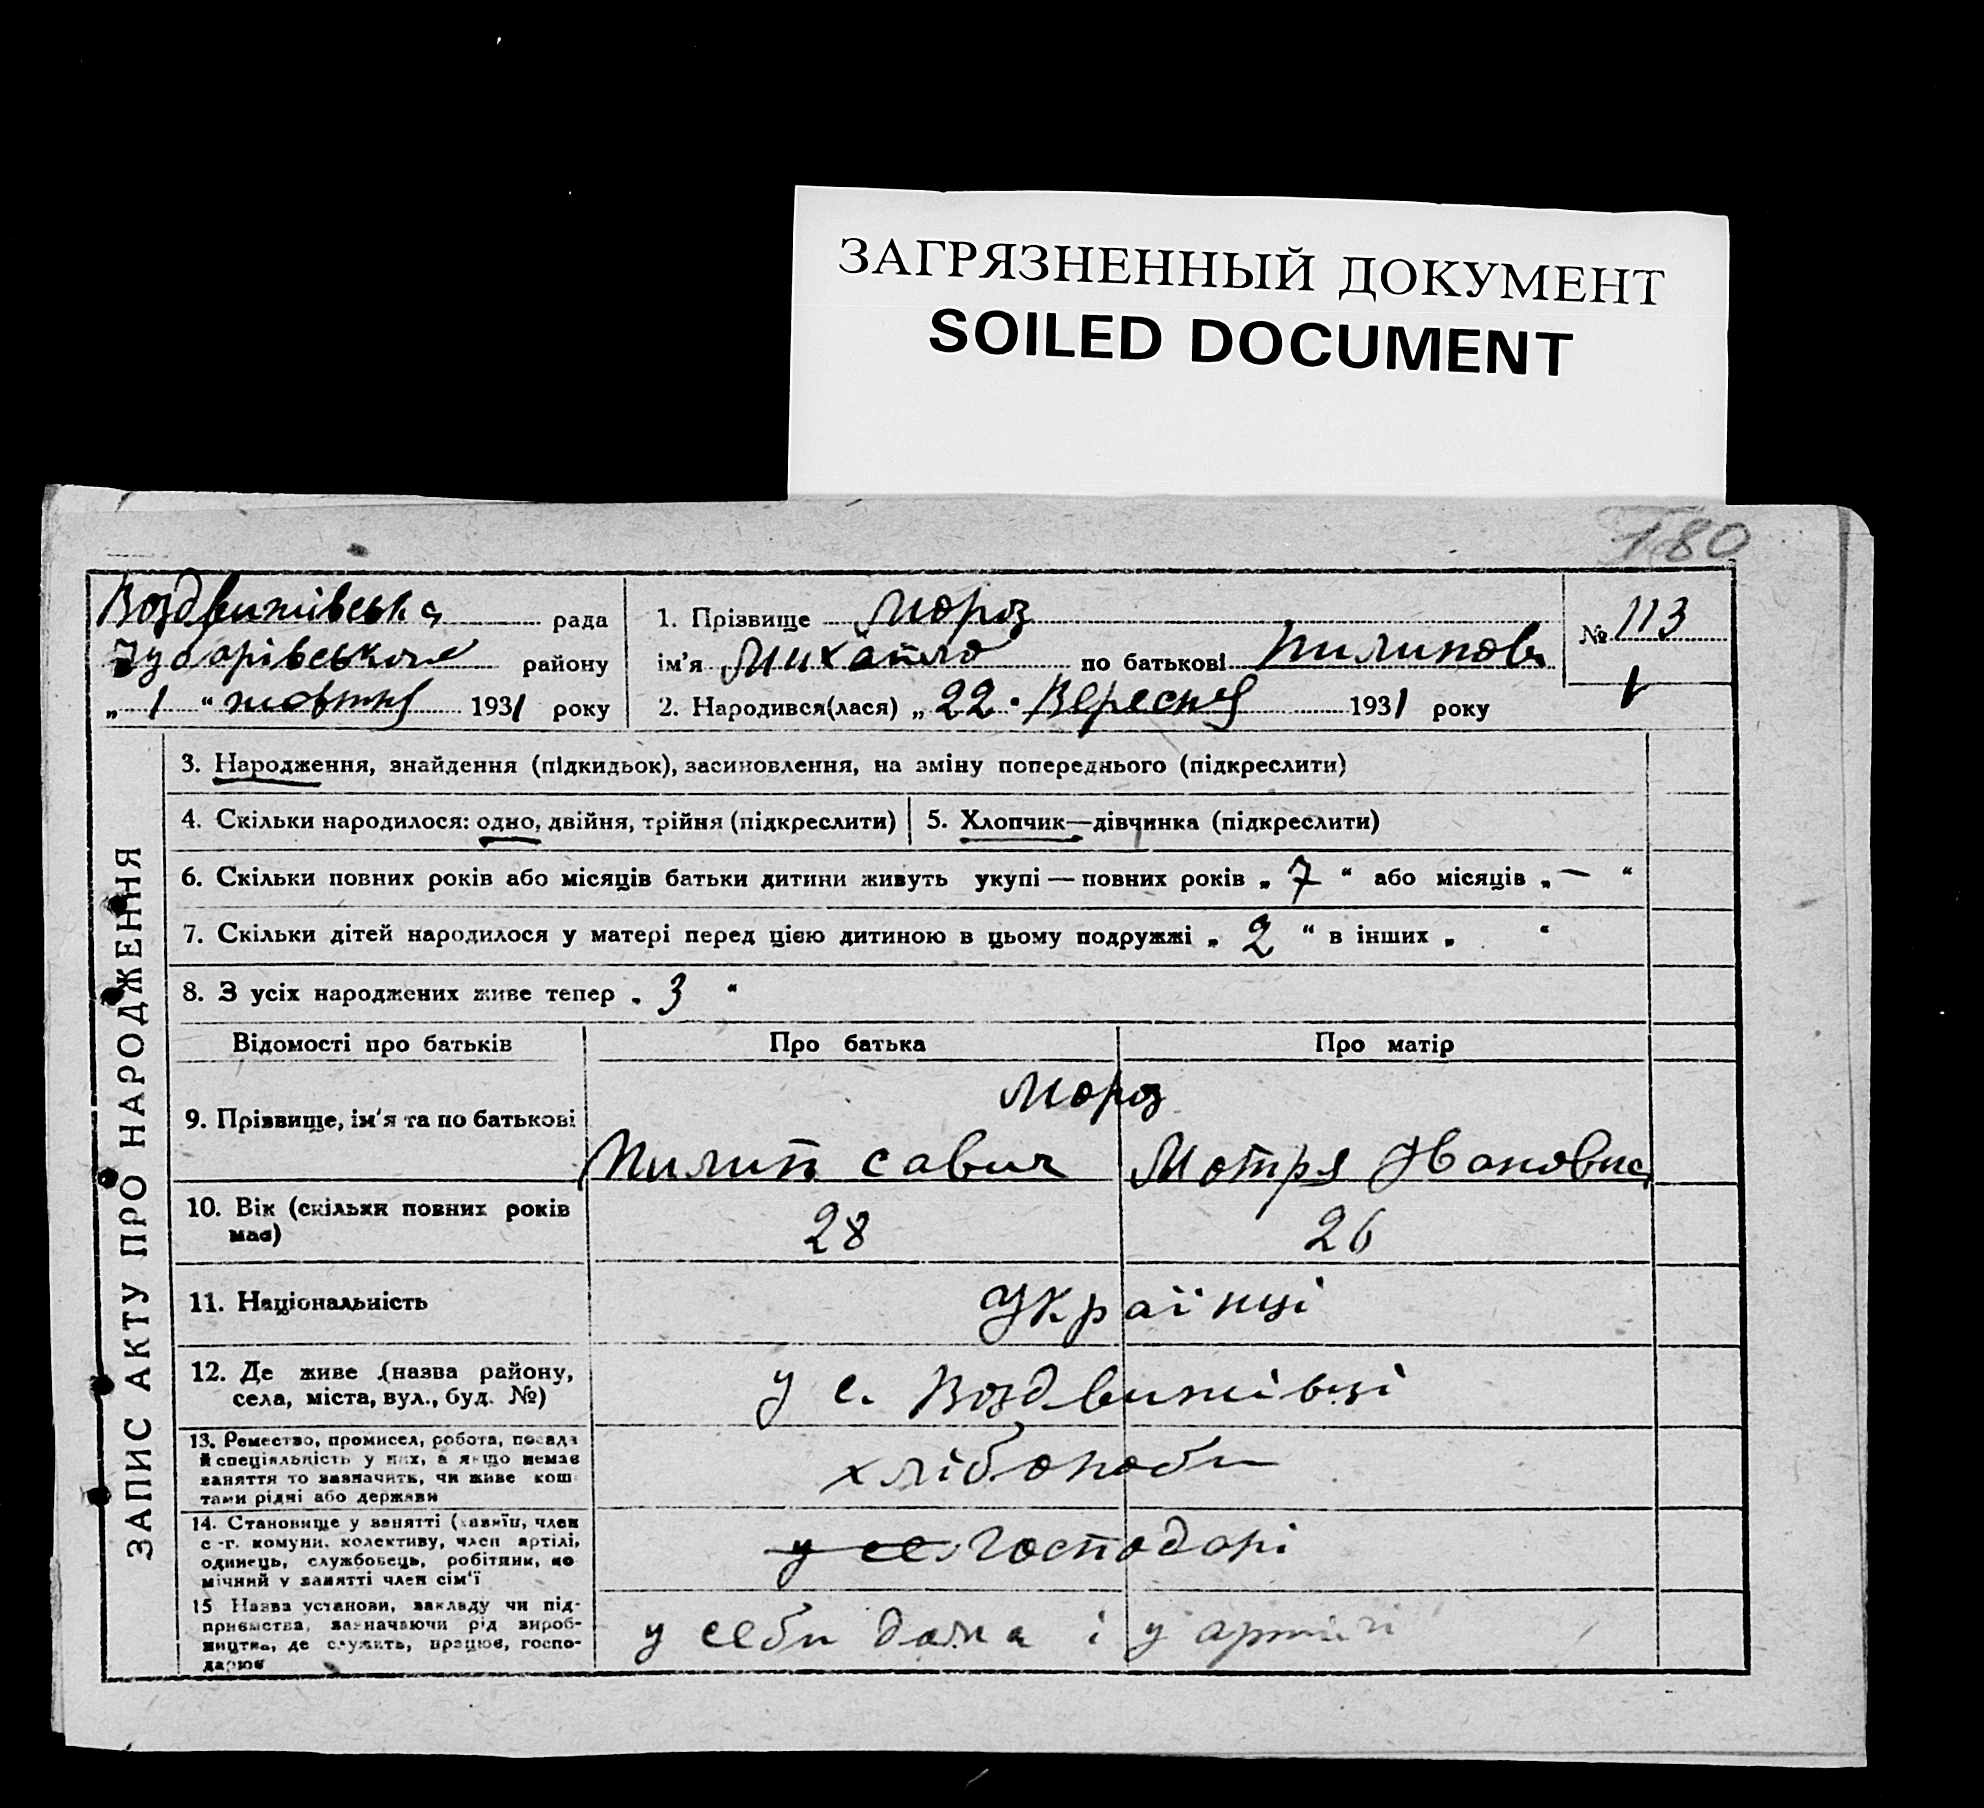 ЗАГРЯЗНЕННЫЙ ДОКУМЕНТ
SOILED DOCUMENT
180
Воздвижівська рада
району
„ 1 “ жовтня 1931 року
1. Прізвище Мороз
ім'я Михайло по батькові Пилипов
2. Народився(лася) „ 22 · Вересня 1931 року
№ 113
ЗАПИС АКТУ ПРО НАРОДЖЕННЯ
3. Народження, знайдення (підкидьок), засиновлення, на зміну попереднього (підкреслити)
4. Скільки народилося: одно, двійня, трійня (підкреслити)
5. Хлопчик—дівчинка (підкреслити)
6. Скільки повних років або місяців батьки дитини живуть укупі — повних років „ 7 “ або місяців „ — “
7. Скільки дітей народилося у матері перед цією дитиною в цьому подружжі „ 2 “ в інших „ “
8. З усіх народжених живе тепер „ 3 “
Відомості про батьків Про батька Про матір
9. Прізвище, ім'я та по батькові
Мороз
Пилип савич Мотря Ивановна
10. Вік (скільки повних років
має)
28 26
11. Національність
Українці
12. Де живе (назва району,
села, міста, вул., буд. №)
у с. Воздвижівці
13. Ремество, промисел, робота, посада
й спеціяльність у них, а якщо немає
заняття то зазначить, чи живе кош
тами рідні або держави
хлібороби
14. Становище у занятті (хазяїн, член
с.-г. комуни, колективу, член артілі,
одинець, службовець, робітник, по
мічний у занятті член сім'ї
у се господарі
15 Назва установи, закладу чи під-
приємства, зазначаючи рід вироб-
ництва, де служить, працює, госпо-
дарює
у себи дома і у артілі